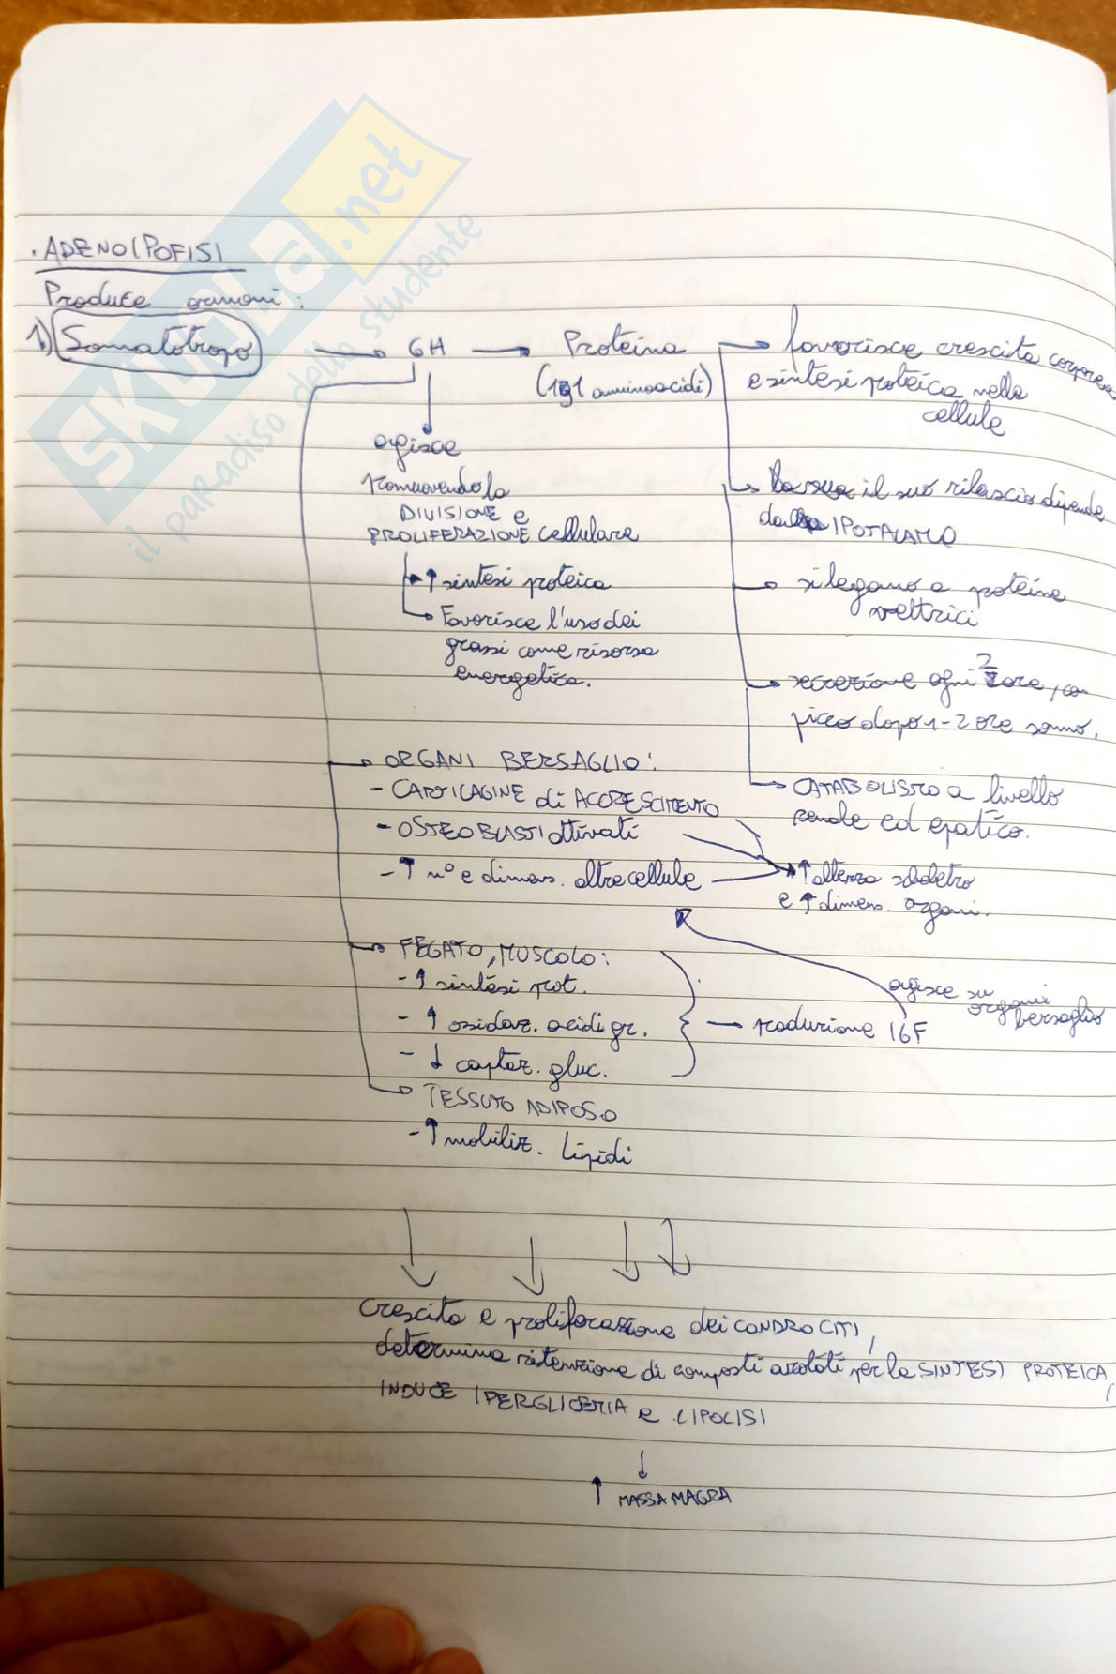 SKUOLA.net
il paradiso dello studente
. ADENOIPOFISI
Produce ormoni :
1) Somatotropo → GH → Proteina
(191 aminoacidi)
→ favorisce crescita corporea
e sintesi proteica nelle
cellule
→ il suo rilascio dipende
IPOTALAMO
→ si legano a proteine
vettrici
→ secrezione ogni 2 ore, con
picco dopo 1-2 ore sonno.
→ CATABOLISMO a livello
renale ed epatico.
agisce
promuovendo la
DIVISIONE e
PROLIFERAZIONE cellulare
→ ↑ sintesi proteica
→ Favorisce l'uso dei
grassi come risorsa
energetica.
→ ORGANI BERSAGLIO:
- CARTILAGINE di ACCRESCIMENTO
- OSTEOBLASTI attivati
- ↑ n° e dimens. altre cellule
→ ↑ altezza scheletro
e ↑ dimens. organi.
→ FEGATO, MUSCOLO:
- ↑ sintesi prot.
- ↑ ossidaz. acidi gr.
- ↓ captaz. gluc.
→ produzione IGF
agisce su
organi
bersaglio
→ TESSUTO ADIPOSO
- ↑ mobiliz. lipidi
crescita e proliferazione dei CONDROCITI,
determina ritenzione di composti azotati per la SINTESI PROTEICA,
INDUCE IPERGLICEMIA e LIPOLISI
↓
↑ MASSA MAGRA